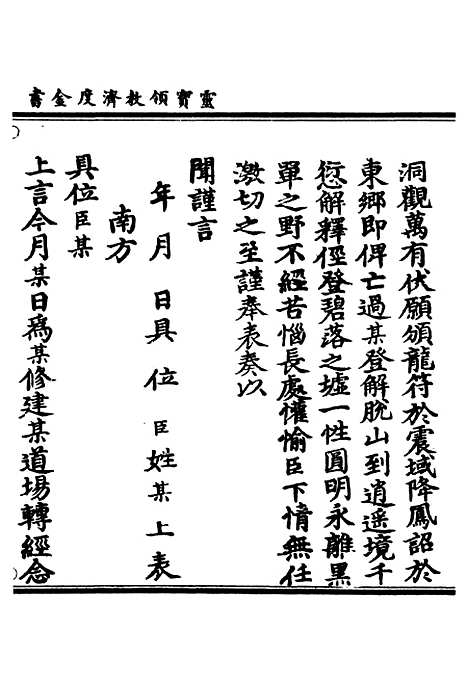 靈寳領教濟度金書
洞觀萬有伏願頒龍符於震域降鳳詔於
東鄉即俾亡過某登解脫山到逍遥境千
愆解釋徑登碧落之墟一性圓明永離黑
單之野不經苦惱長處懽愉臣下情無任
激切之至謹奉表奏以
聞謹言
年月日具位臣姓某上表
南方
具位臣某
上言今月某日爲某修建某道場轉經念